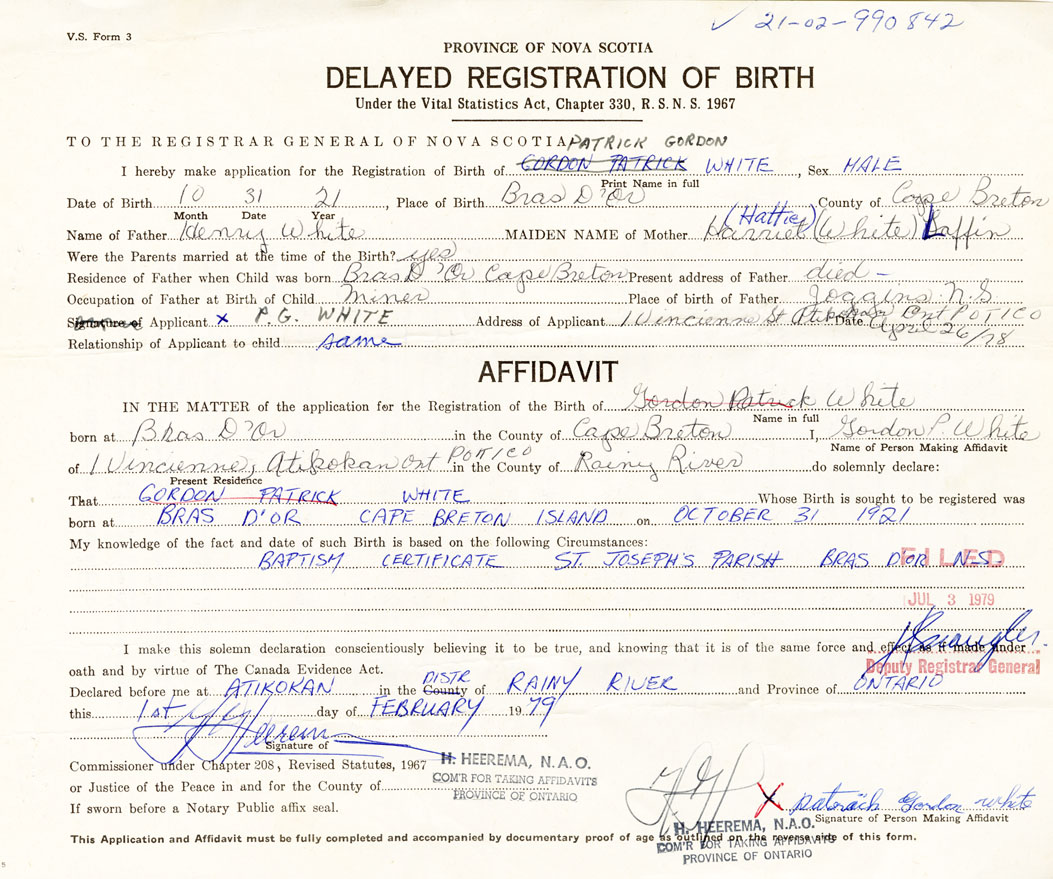 ✓ 21-02-990842
V.S. Form 3
PROVINCE OF NOVA SCOTIA
DELAYED REGISTRATION OF BIRTH
Under the Vital Statistics Act, Chapter 330, R. S. N. S. 1967
TO THE REGISTRAR GENERAL OF NOVA SCOTIA PATRICK GORDON
I hereby make application for the Registration of Birth of GORDON PATRICK WHITE, Sex MALE
Print Name in full
Date of Birth 10 31 21, Place of Birth Bras D'Or County of Cape Breton
Month Date Year
(Hattie)
Name of Father Henry White MAIDEN NAME of Mother Harriet (White) Laffin
Were the Parents married at the time of the Birth? yes
Residence of Father when Child was born Bras D'Or Cape Breton Present address of Father died -
Occupation of Father at Birth of Child Miner Place of birth of Father Joggins N.S.
Signature of Applicant x P.G. WHITE Address of Applicant 1 Vincienne St Atikokan Ont POT1CO
Date April 26/78
Relationship of Applicant to child same
AFFIDAVIT
IN THE MATTER of the application for the Registration of the Birth of Gordon Patrick White
Name in full
born at Bras D'Or in the County of Cape Breton I, Gordon P. White
Name of Person Making Affidavit
of 1 Vincienne, Atikokan ont POT1CO in the County of Rainy River do solemnly declare:
Present Residence
That GORDON PATRICK WHITE Whose Birth is sought to be registered was
born at BRAS D'OR CAPE BRETON ISLAND on OCTOBER 31 1921
My knowledge of the fact and date of such Birth is based on the following Circumstances:
BAPTISM CERTIFICATE ST. JOSEPH'S PARISH BRAS D'OR N.S.
FILED
JUL 3 1979
I make this solemn declaration conscientiously believing it to be true, and knowing that it is of the same force and effect as if made under
Deputy Registrar General
oath and by virtue of The Canada Evidence Act.
Declared before me at ATIKOKAN in the County DISTR of RAINY RIVER and Province of ONTARIO
this 1st day of FEBRUARY 1979
Heerema
Signature of
Commissioner under Chapter 208, Revised Statutes, 1967
or Justice of the Peace in and for the County of
If sworn before a Notary Public affix seal.
H. HEEREMA, N.A.O.
COM'R FOR TAKING AFFIDAVITS
PROVINCE OF ONTARIO
X Paterach Gordon White
Signature of Person Making Affidavit
This Application and Affidavit must be fully completed and accompanied by documentary proof of age as outlined on the reverse side of this form.
H. HEEREMA, N.A.O.
COM'R FOR TAKING AFFIDAVITS
PROVINCE OF ONTARIO